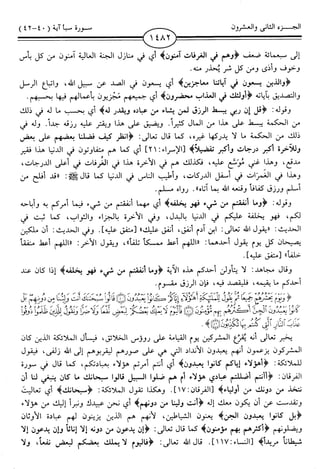 الجـزء الثاني والعشرون
١٤٨٢
سورة سبأ آية (٤٠-٤٢)
إلى سبعمائة ضعف ﴿وهم في الغرفات آمنون﴾ أي في منازل الجنة العالية آمنون من كل بأس
وخوف وأذى ومن كل شر يُحذر منه.
﴿والذين يسعون في آياتنا معاجزين﴾ أي يسعون في الصد عن سبيل الله، واتباع الرسل
والتصديق بآياته ﴿أولئك في العذاب محضرون﴾ أي جميعهم مجزيون بأعمالهم فيها بحسبهم.
وقوله: ﴿قل إن ربي يبسط الرزق لمن يشاء من عباده ويقدر له﴾ أي بحسب ما له في ذلك
من الحكمة يبسط على هذا من المال كثيراً، ويضيق على هذا ويقتر عليه رزقه جداً، وله في
ذلك من الحكمة ما لا يدركها غيره، كما قال تعالى: ﴿انظر كيف فضلنا بعضهم على بعض
وللآخرة أكبر درجات وأكبر تفضيلاً﴾ [الإسراء: ٢١] أي كما هم متفاوتون في الدنيا هذا فقير
مدقع، وهذا غني مُوسَّع عليه، فكذلك هم في الآخرة هذا في الغُرفات في أعلى الدرجات،
وهذا في الغمرات في أسفل الدركات، وأطيب الناس في الدنيا كما قال ﷺ: «قد أفلح من
أسلم ورزق كفافاً وقنعه الله بما آتاه». رواه مسلم.
وقوله: ﴿وما أنفقتم من شيء فهو يخلفه﴾ أي مهما أنفقتم من شيء فيما أمركم به وأباحه
لكم، فهو يخلفه عليكم في الدنيا بالبدل، وفي الآخرة بالجزاء والثواب، كما ثبت في
الحديث: «يقول الله تعالى: ابن آدم أنفق، أنفق عليك» [متفق عليه]. وفي الحديث: أن ملكين
يصيحان كل يوم يقول أحدهما: «اللهم أعط ممسكاً تلفاً»، ويقول الآخر: «اللهم أعط منفقاً
خلفاً» [متفق عليه].
وقال مجاهد: لا يتأولن أحدكم هذه الآية ﴿وما أنفقتم من شيء فهو يخلفه﴾ إذا كان عند
أحدكم ما يقيمه، فليقصد فيه، فإن الرزق مقسوم.
﴿ويوم يحشرهم جميعا ثم يقول للملائكة أهؤلاء إياكم كانوا يعبدون قالوا سبحانك أنت ولينا من دونهم بل
كانوا يعبدون الجن أكثرهم بهم مؤمنون فاليوم لا يملك بعضكم لبعض نفعا ولا ضرا ونقول للذين ظلموا ذوقوا
عذاب النار التي كنتم بها تكذبون﴾.
يخبر تعالى أنه يُقرِّع المشركين يوم القيامة على رؤوس الخلائق، فيسأل الملائكة الذين كان
المشركون يزعمون أنهم يعبدون الأنداد التي هي على صورهم ليقربوهم إلى الله زلفى، فيقول
للملائكة: ﴿أهؤلاء إياكم كانوا يعبدون﴾ أي أنتم أمرتم هؤلاء بعبادتكم، كما قال في سورة
الفرقان: ﴿أأنتم أضللتم عبادي هؤلاء أم هم ضلوا السبيل قالوا سبحانك ما كان ينبغي لنا أن
نتخذ من دونك من أولياء﴾ [الفرقان: ١٧]. وهكذا تقول الملائكة: ﴿سبحانك﴾ أي تعاليت
وتقدست عن أن يكون معك إله ﴿أنت ولينا من دونهم﴾ أي نحن عبيدك ونبرأ إليك من هؤلاء
﴿بل كانوا يعبدون الجن﴾ يعنون الشياطين، لأنهم هم الذين يزينون لهم عبادة الأوثان
ويضلونهم ﴿أكثرهم بهم مؤمنون﴾ كما قال تعالى: ﴿إن يدعون من دونه إلا إناثاً وإن يدعون إلا
شيطاناً مريداً﴾ [النساء: ١١٧]. قال الله تعالى: ﴿فاليوم لا يملك بعضكم لبعض نفعاً، ولا